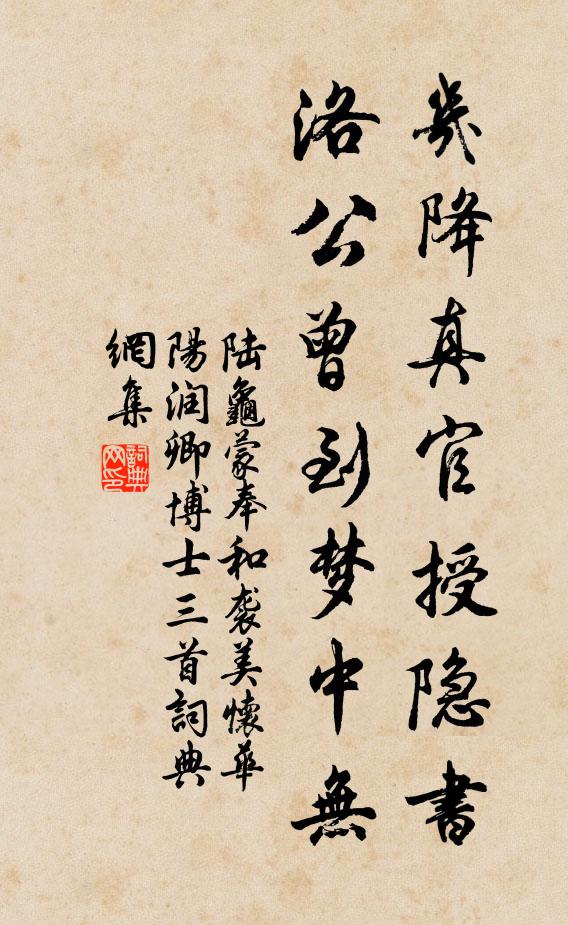 幾降真官授隐書
洛公曾到梦中無
陆龜蒙奉和袭美懷華
陽润卿博士三首詞典
網集
詞典网印